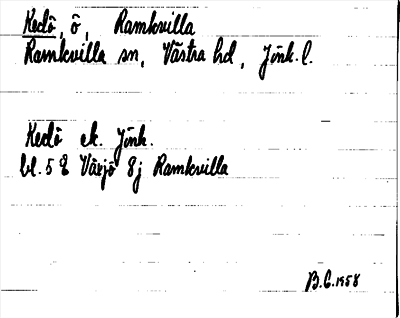 Kedö, ö, Ramkvilla
Ramkvilla sn, Västra hd, Jönk. l.
Kedö ek. Jönk.
bl. 5 E Växjö 8j Ramkvilla
B.G. 1958